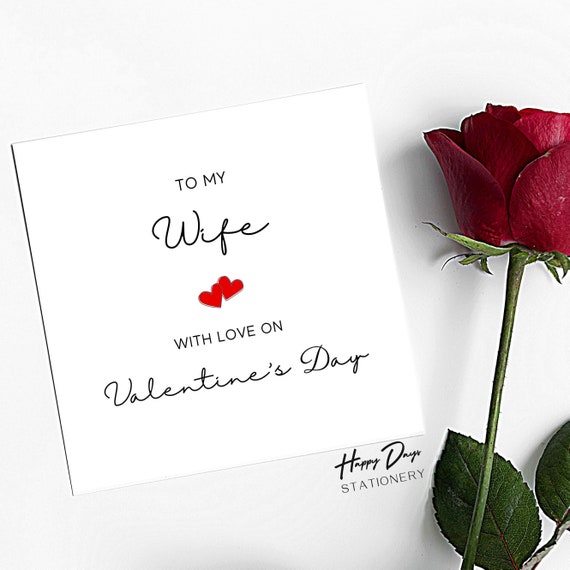 TO MY
Wife
WITH LOVE ON
Valentine's Day
Happy Days
STATIONERY